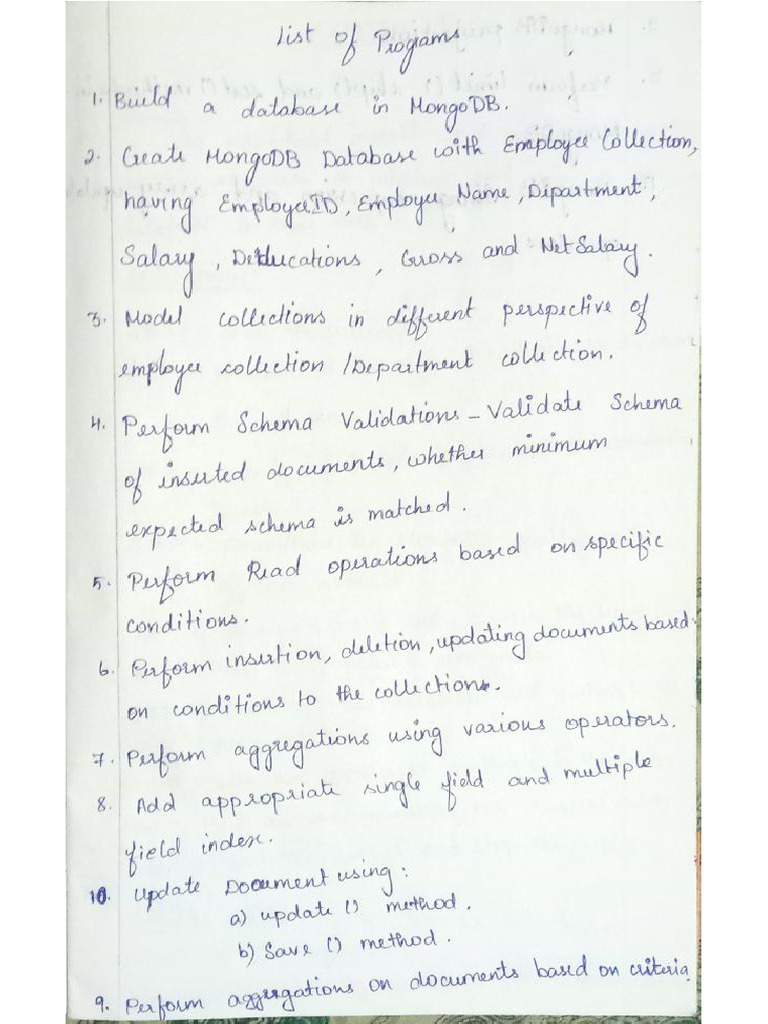 List of Programs
1. Build a database in MongoDB.
2. Create MongoDB Database with Employee Collection,
having EmployeeID, Employee Name, Dipartment,
Salary, Deducations, Gross and NetSalary.
3. Model collections in different perspective of
employee collection /Department collection.
4. Perform Schema Validations - Validate Schema
of inserted documents, whether minimum
expected schema is matched.
5. Perform Read operations based on specific
conditions.
6. Perform insertion, deletion, updating documents based
on conditions to the collection.
7. Perform aggregations using various operators.
8. Add appropriate single field and multiple
field index.
10. Update Document using:
a) update () method.
b) Save () method.
9. Perform aggregations on documents based on criteria